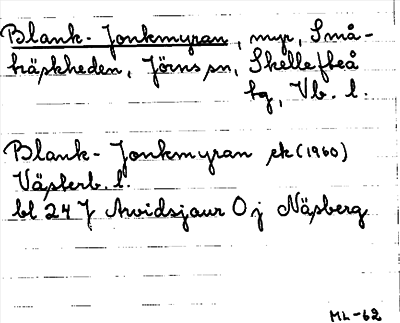 Blank-Jonkmyran, myr, Små-
träskheden, Jörns sn, Skellefteå
tg, Vb. l.
Blank-Jonkmyran ek (1960)
Västerb. l.
bl 24 J Arvidsjaur 0 j Näsberg
ML-62